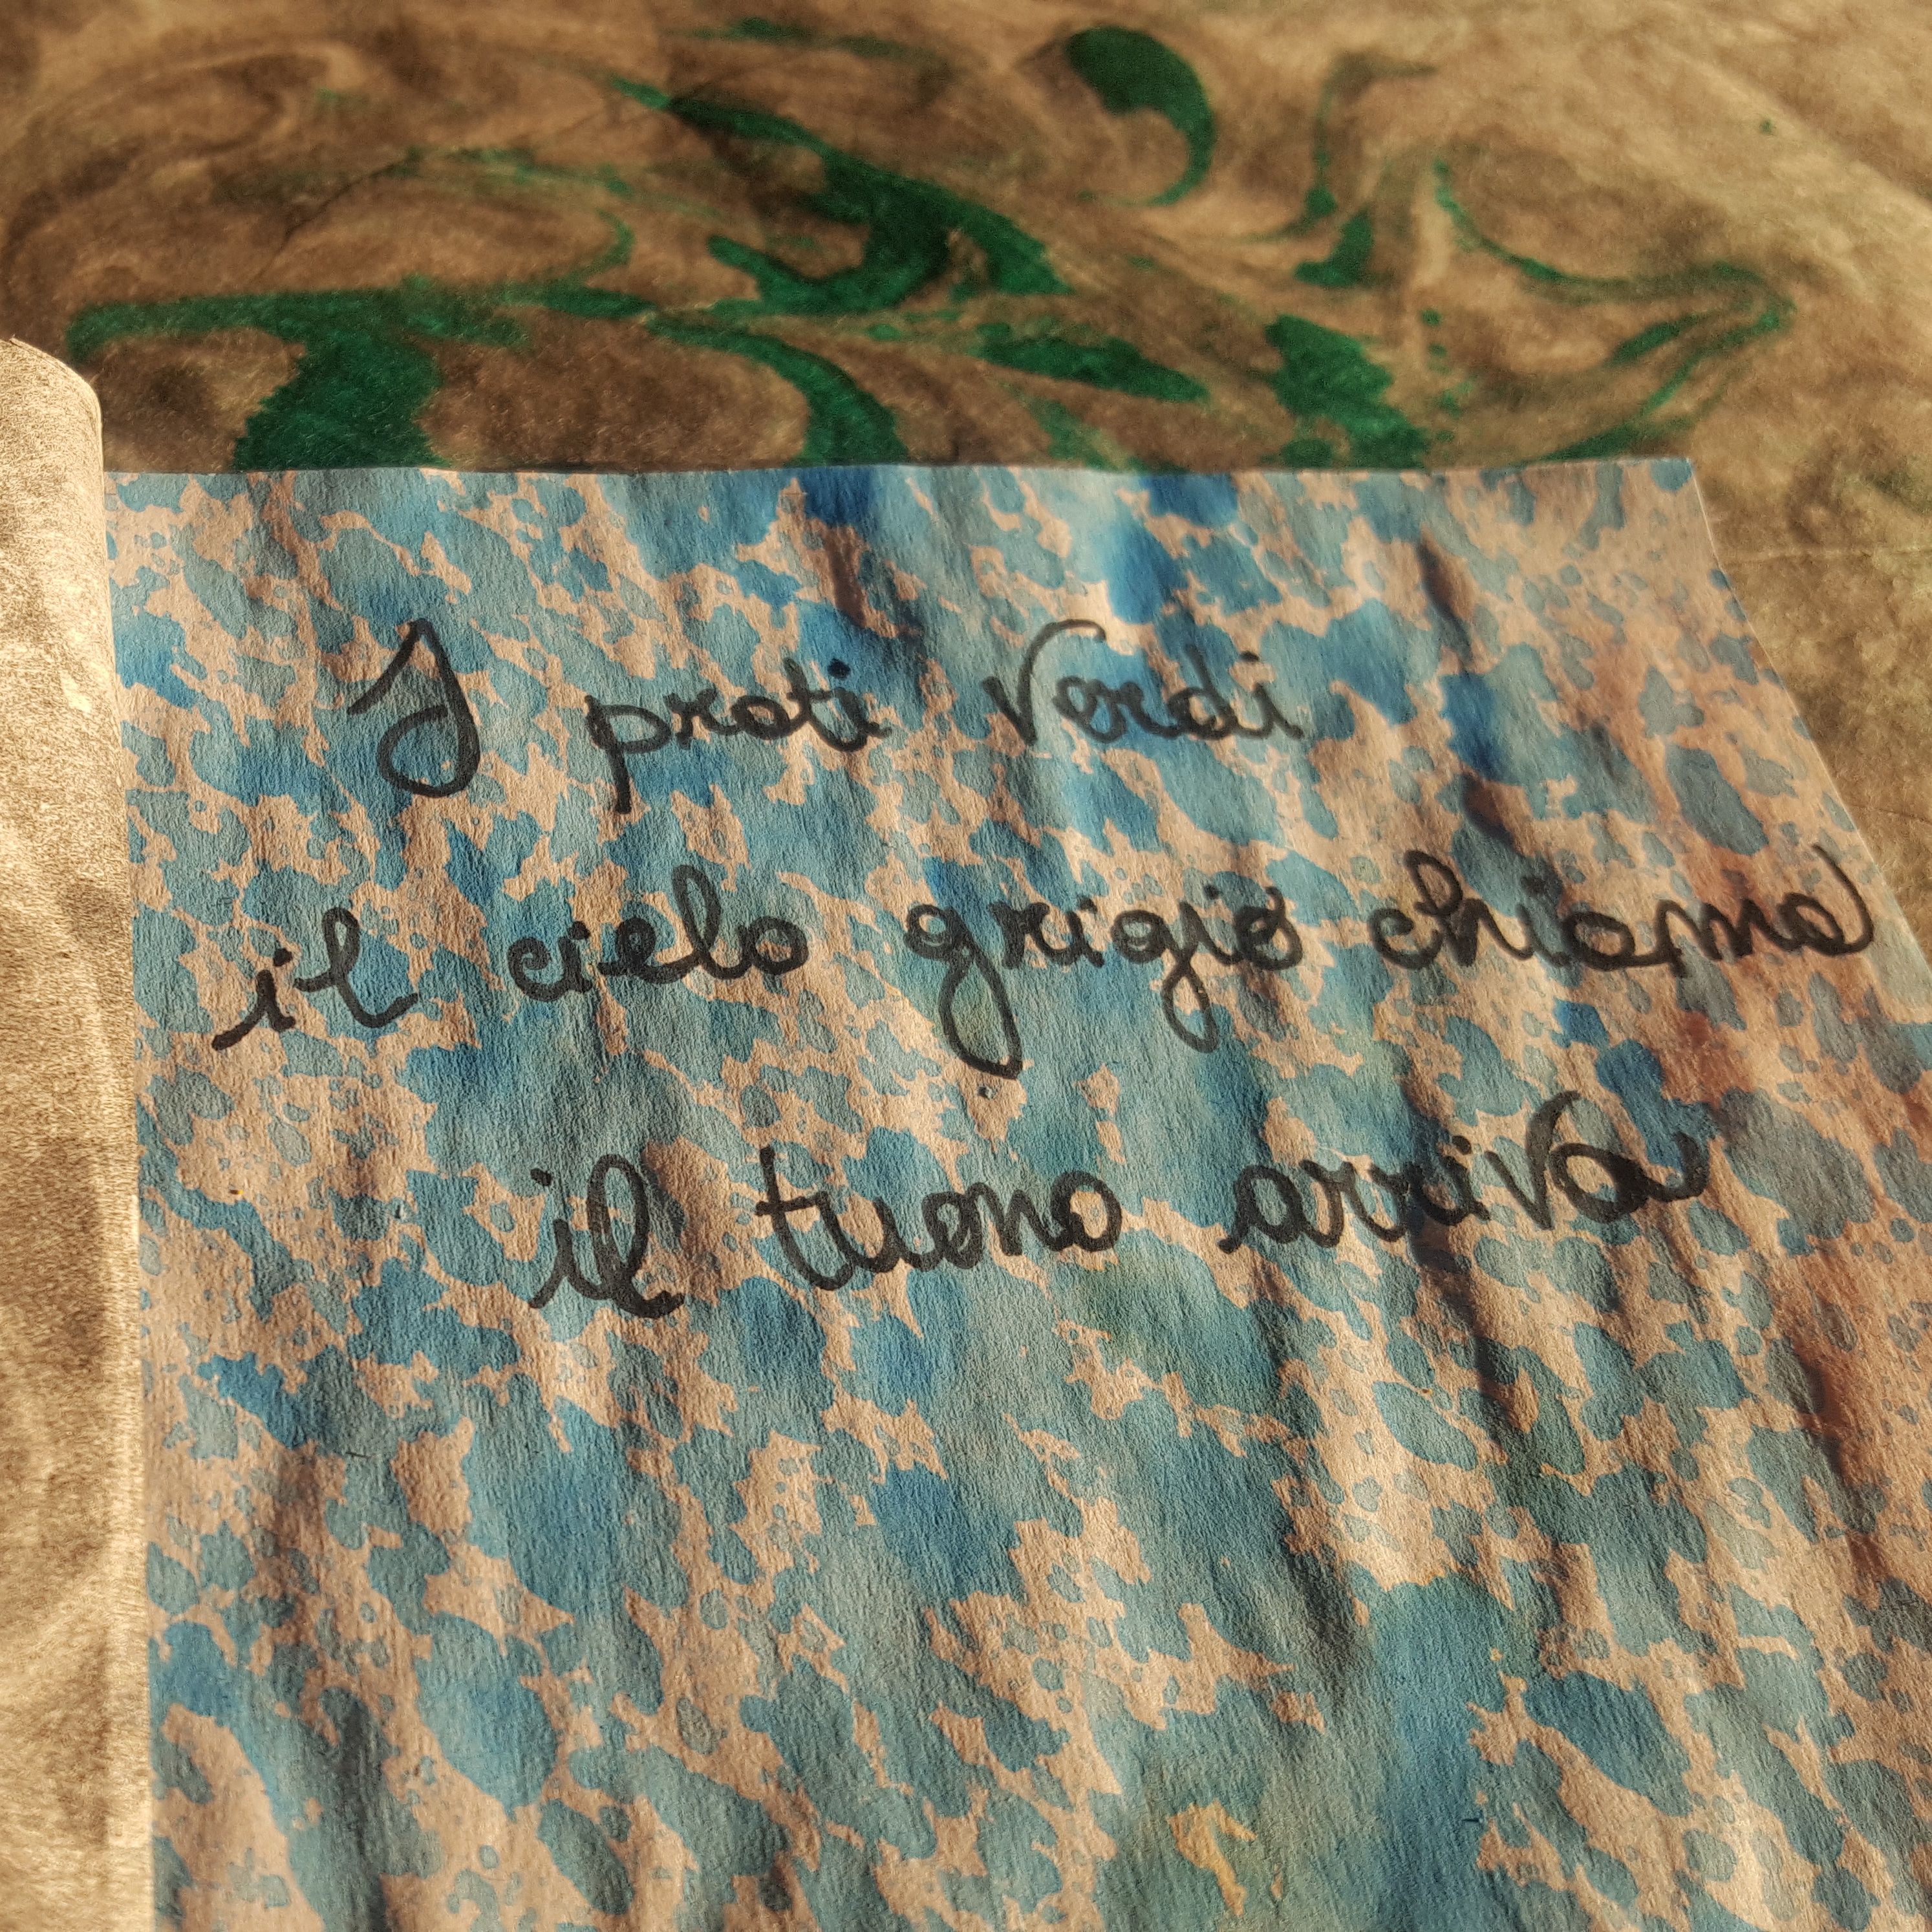 I prati Verdi
il cielo grigio chiama
il tuono arriva